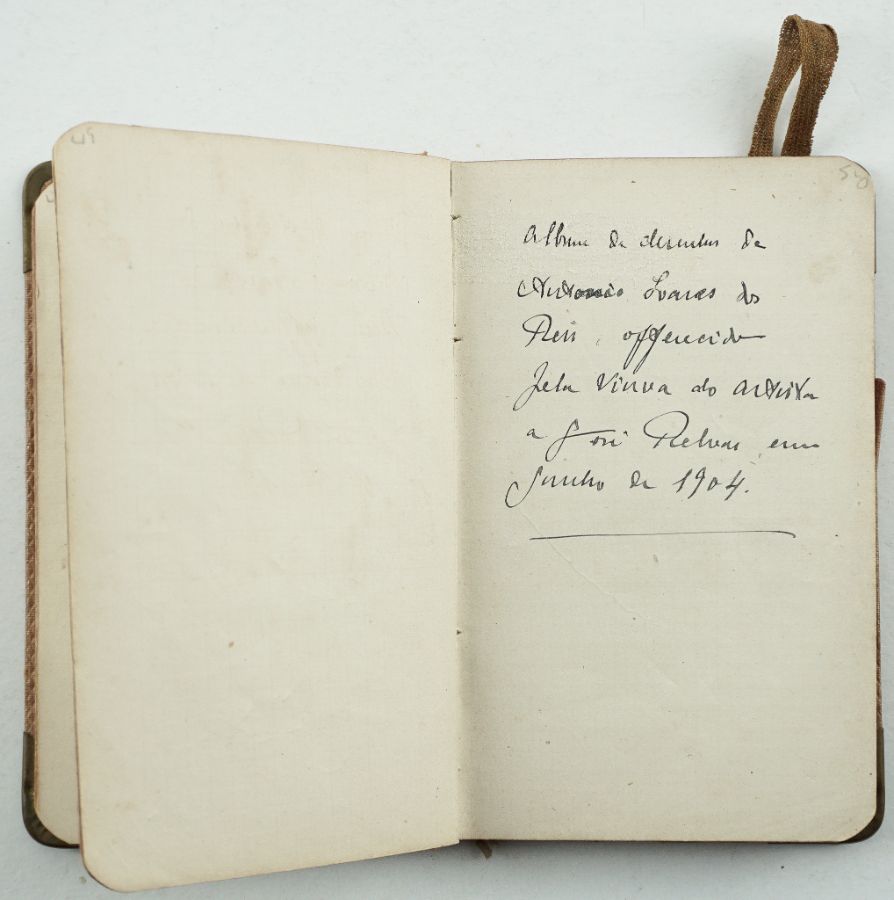 49
50
Album de desenhos de
Antonio Soares dos
Reis, offerecido
pela viuva do artista
a José Relvas em
Junho de 1904.